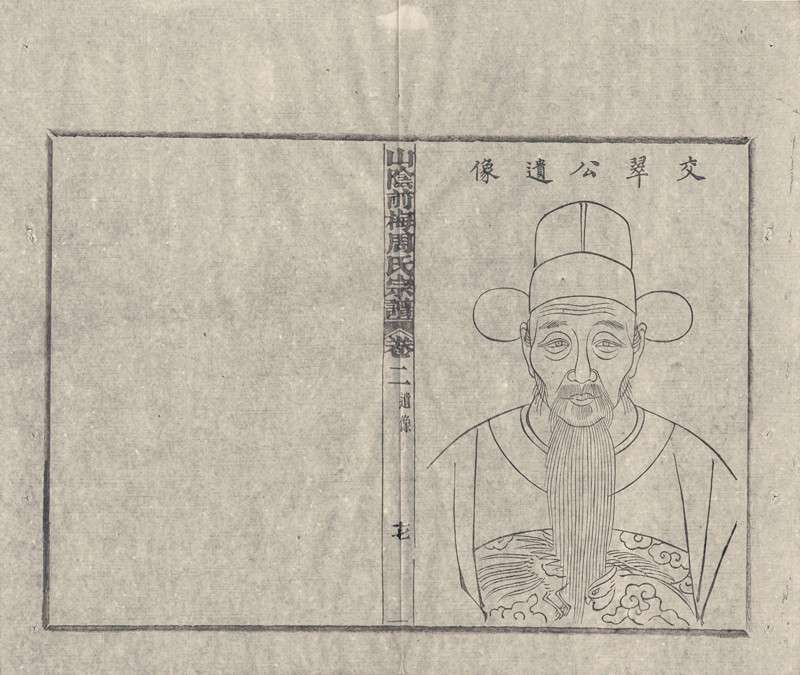 交翠公遺像
山陰前梅周氏宗譜
卷二
遺像
十七